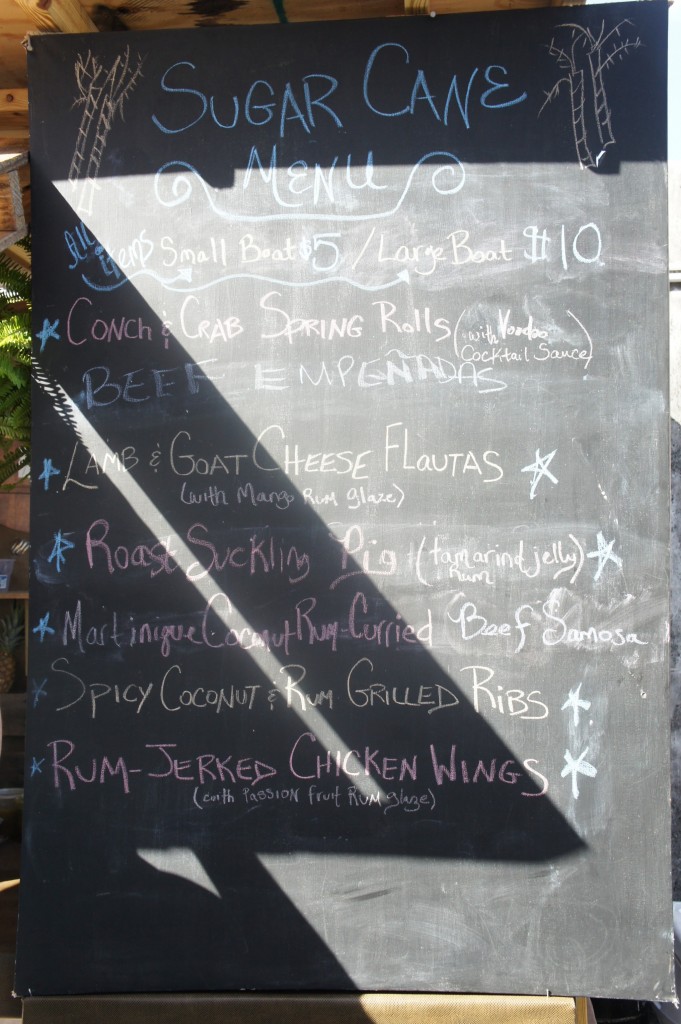 SUGAR CANE
MENU
All items Small Boat $5 / Large Boat $10
CONCH & CRAB SPRING ROLLS (with Voodoo
Cocktail Sauce)
BEEF EMPEÑADAS
LAMB & GOAT CHEESE FLAUTAS
(with Mango Rum glaze)
Roast Suckling Pig (tamarind jelly)
Rum
Martinique Coconut Rum-Curried Beef Samosa
SPICY COCONUT & RUM GRILLED RIBS
RUM-JERKED CHICKEN WINGS
(with PASSION fruit RUM glaze)